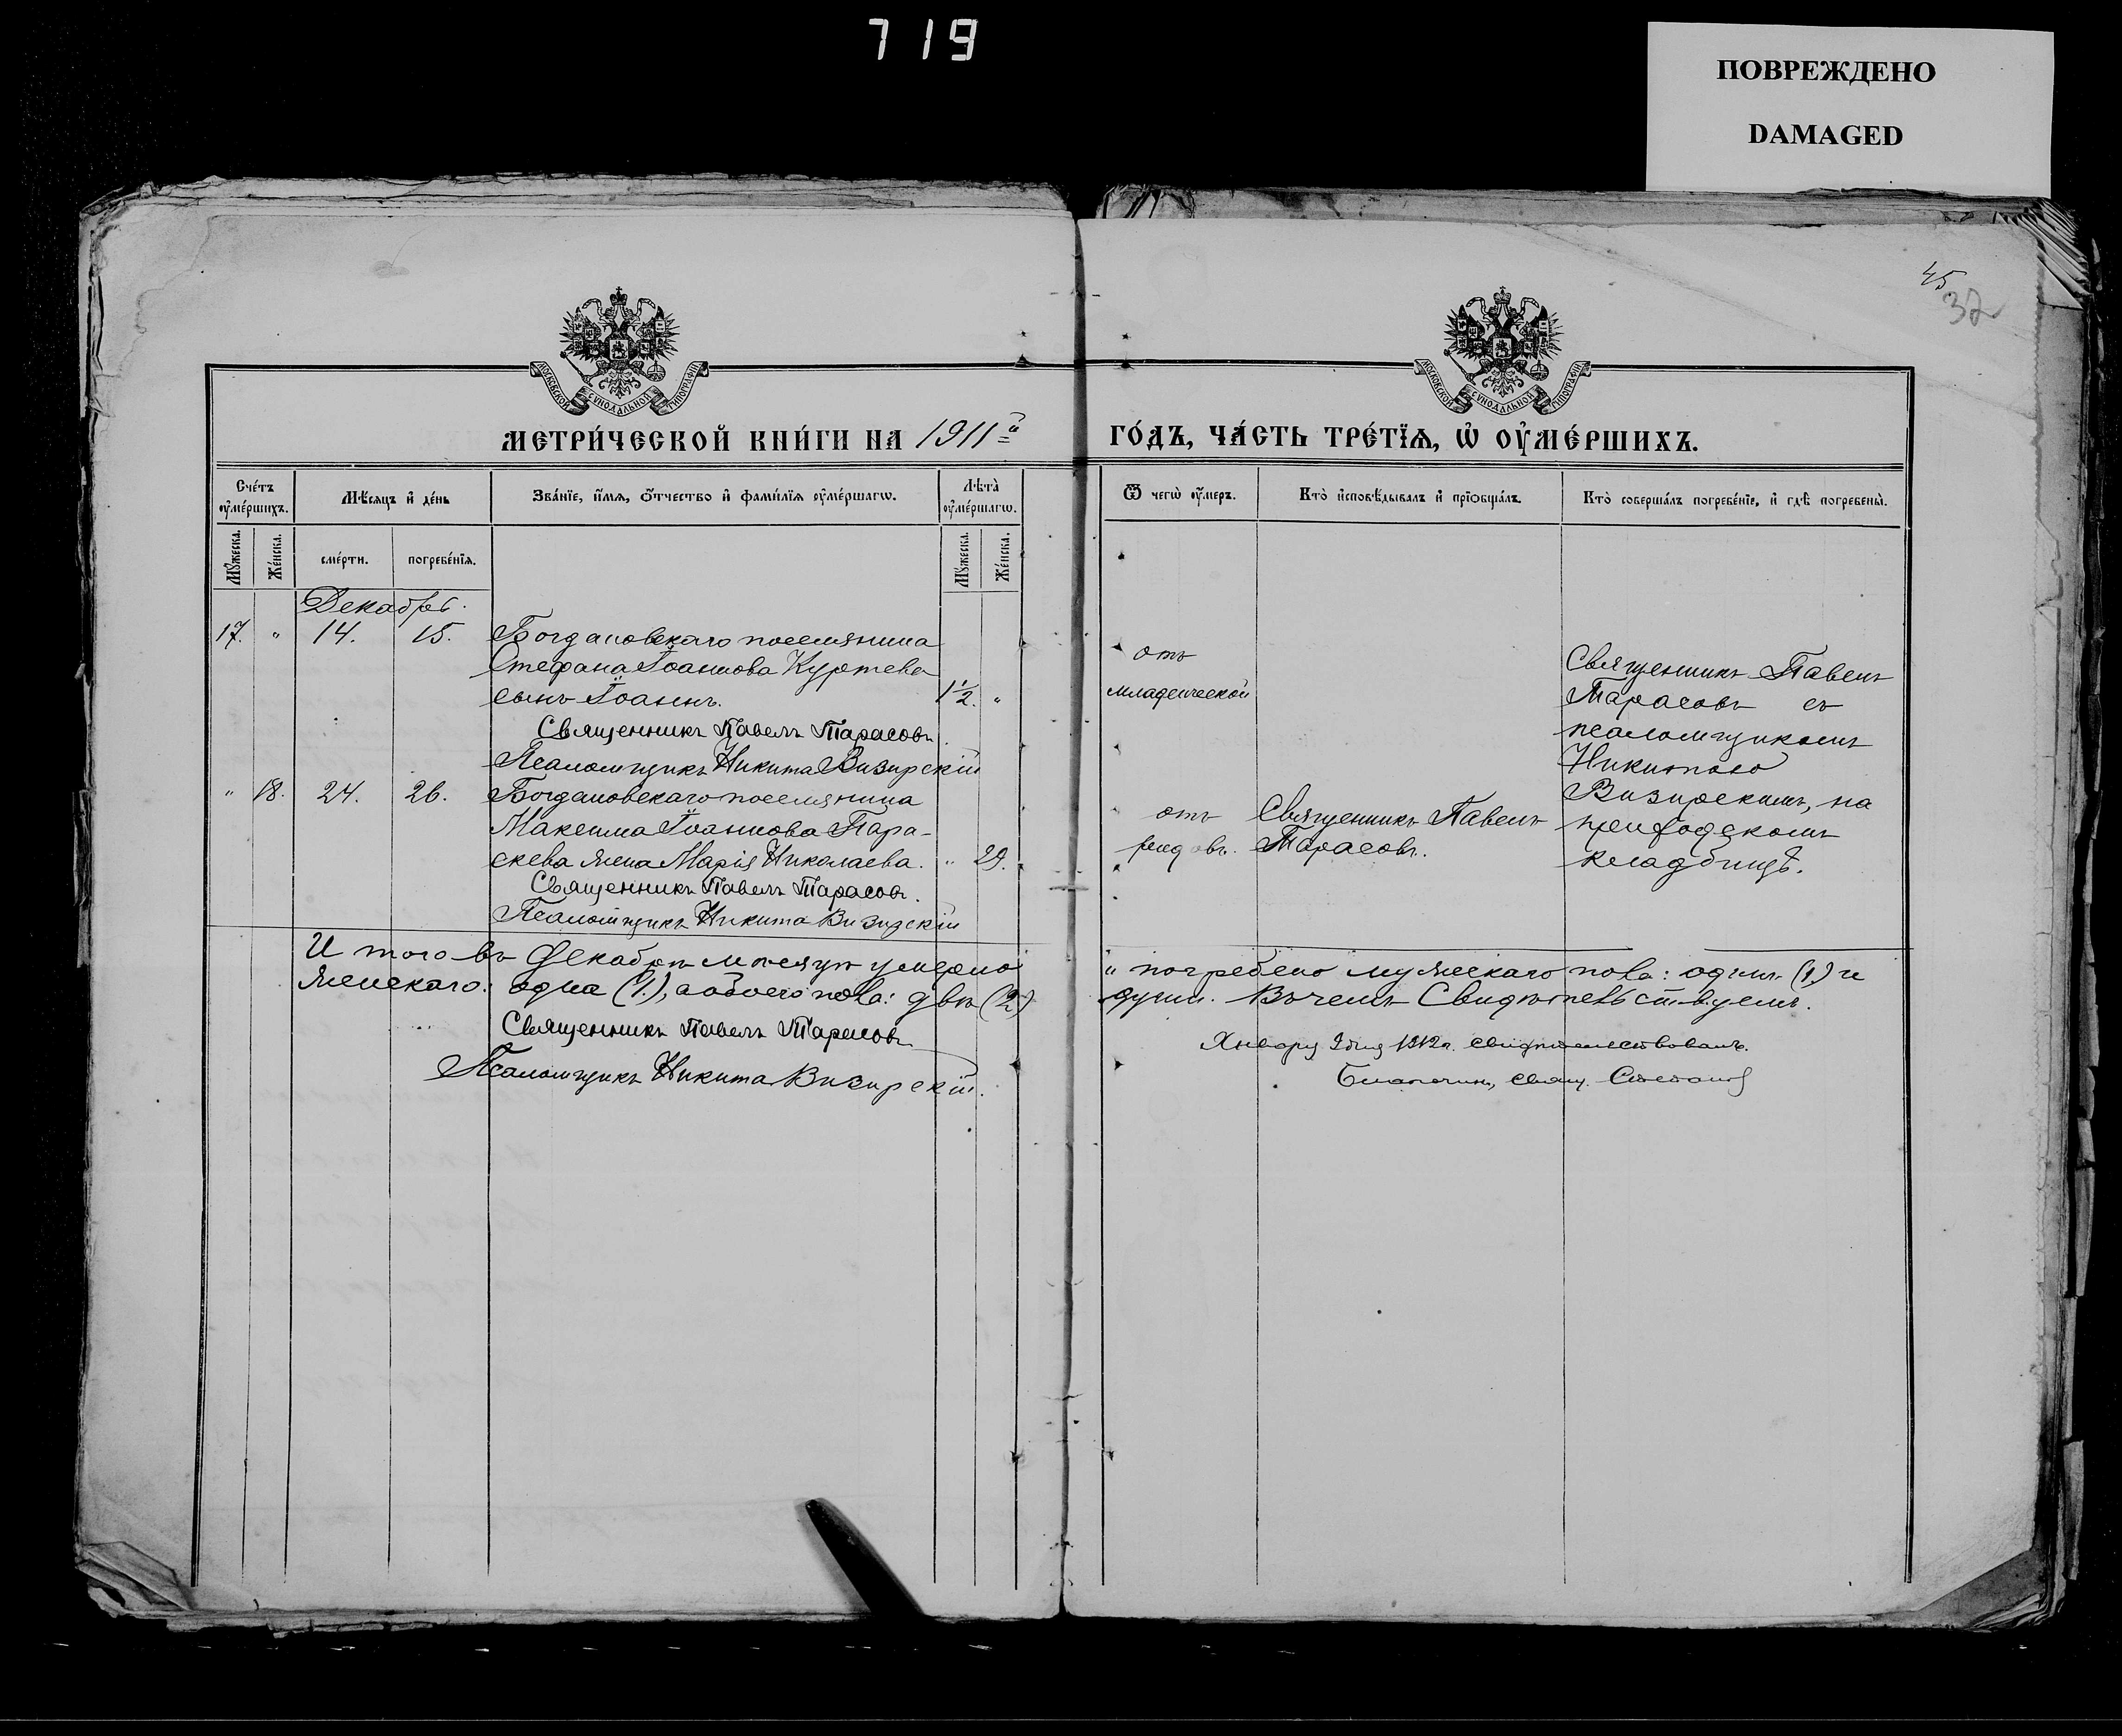 719
ПОВРЕЖДЕНО
DAMAGED
45
32
МОСКОВСКОЙ СУНОДАЛЬНОЙ ТИПОГРАФІИ
МОСКОВСКОЙ СУНОДАЛЬНОЙ ТИПОГРАФІИ
МЕТРИ́ЧЕСКОЙ КНИ́ГИ НА 1911й
ГО́ДЪ, ЧА́СТЬ ТРЕ́ТЇѦ, Ѡ҆ ОУ҆МЕ́РШИХЪ.
Сче́тъ оу҆ме́ршихъ.
Мѣ́сяцъ и҆ де́нь
Зва́нїе, и҆́мѧ, ѻ҆́тчество и҆ фами́лїѧ оу҆ме́ршагѡ.
Лѣ̑та̀ оу҆ме́ршагѡ.
Ѿ чегѡ̀ оу҆́меръ.
Кто̀ и҆сповѣ́дывалъ и҆ прїѡбща́лъ.
Кто̀ соверша́лъ погребе́нїе, и҆ гдѣ̀ погребены̀.
Мꙋ́жеска.
Же́нска.
сме́рти.
погребе́нїѧ.
Мꙋ́жеска.
Же́нска.
Декабрь.
17. " 14. 15. Богдановскаго поселянина
Стефана Іоаннова Куртева
сынъ Іоаннъ. 1½. "
Священникъ Павелъ Тарасовъ.
Псаломщикъ Никита Визирскій
отъ
младенческой
Священникъ Павелъ
Тарасовъ съ
псаломщикомъ
Никитою
Визирскимъ, на
приходскомъ
кладбищѣ.
" 18. 24. 26. Богдановскаго поселянина
Максима Іоаннова Пара-
скева жена Марія Николаева. " 29.
Священникъ Павелъ Тарасовъ.
Псаломщикъ Никита Визирскій
отъ
родовъ.
Священникъ Павелъ
Тарасовъ.
И того въ Декабрѣ мѣсяцѣ умерло
" погребено мужескаго пола: одинъ (1.) и
женскаго: одна (1.), а обоего пола: двѣ (2.)
души. Въ чемъ Свидѣтельствуемъ.
Священникъ Павелъ Тарасовъ
Псаломщикъ Никита Визирскій.
Января 2 дня 1912 г. свидѣтельствовалъ.
Благочин. свящ.